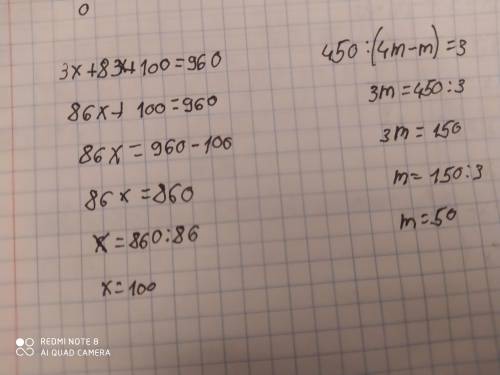 0
3x+83x+100=960
86x+ 100=960
86x=960-100
86x=860
x=860:86
x=100
450:(4m-m)=3
3m=450:3
3m=150
m=150:3
m=50
REDMI NOTE 8
AI QUAD CAMERA